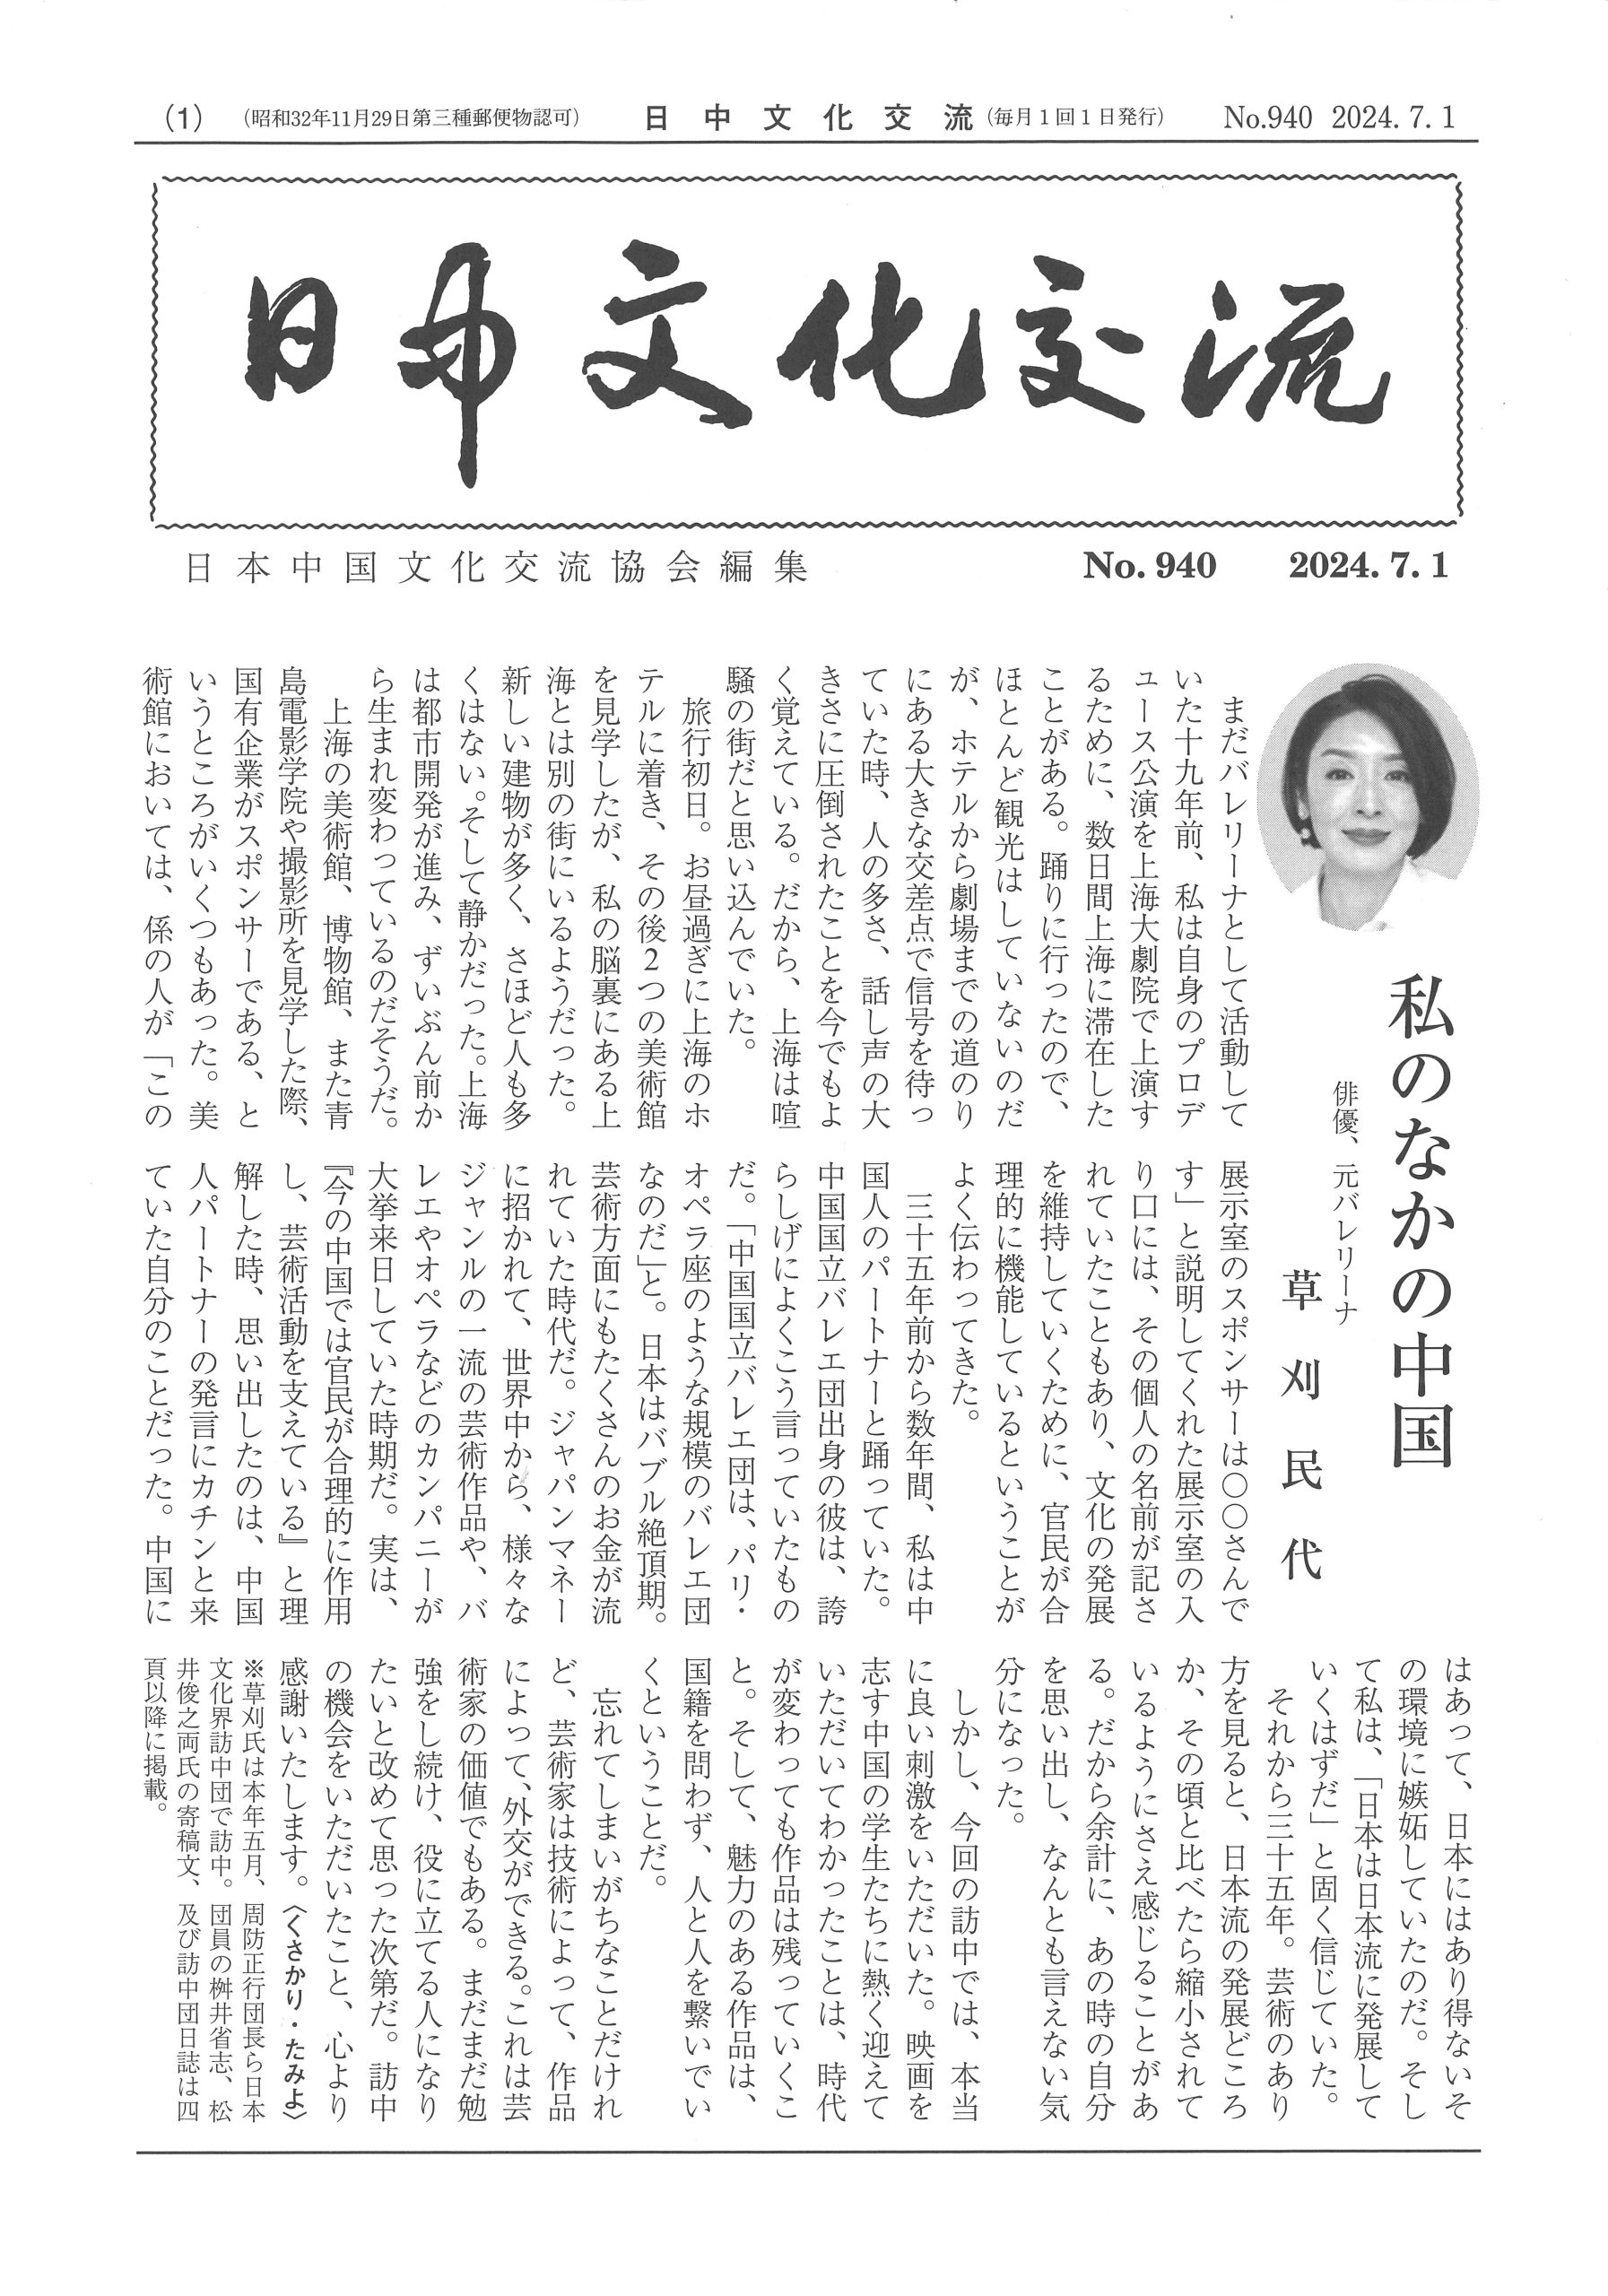 (1) (昭和32年11月29日第三種郵便物認可) 日中文化交流 (毎月1回1日発行) No.940 2024.7.1
日中文化交流
日本中国文化交流協会編集 No. 940 2024. 7. 1
私のなかの中国
俳優、元バレリーナ
草刈民代
まだバレリーナとして活動して
いた十九年前、私は自身のプロデ
ュース公演を上海大劇院で上演す
るために、数日間上海に滞在した
ことがある。踊りに行ったので、
ほとんど観光はしていないのだ
が、ホテルから劇場までの道のり
にある大きな交差点で信号を待っ
ていた時、人の多さ、話し声の大
きさに圧倒されたことを今でもよ
く覚えている。だから、上海は喧
騒の街だと思い込んでいた。
旅行初日。お昼過ぎに上海のホ
テルに着き、その後2つの美術館
を見学したが、私の脳裏にある上
海とは別の街にいるようだった。
新しい建物が多く、さほど人も多
くはない。そして静かだった。上海
は都市開発が進み、ずいぶん前か
ら生まれ変わっているのだそうだ。
上海の美術館、博物館、また青
島電影学院や撮影所を見学した際、
国有企業がスポンサーである、と
いうところがいくつもあった。美
術館においては、係の人が「この
展示室のスポンサーは〇〇さんで
す」と説明してくれた展示室の入
り口には、その個人の名前が記さ
れていたこともあり、文化の発展
を維持していくために、官民が合
理的に機能しているということが
よく伝わってきた。
三十五年前から数年間、私は中
国人のパートナーと踊っていた。
中国国立バレエ団出身の彼は、誇
らしげによくこう言っていたもの
だ。「中国国立バレエ団は、パリ・
オペラ座のような規模のバレエ団
なのだ」と。日本はバブル絶頂期。
芸術方面にもたくさんのお金が流
れていた時代だ。ジャパンマネー
に招かれて、世界中から、様々な
ジャンルの一流の芸術作品や、バ
レエやオペラなどのカンパニーが
大挙来日していた時期だ。実は、
『今の中国では官民が合理的に作用
し、芸術活動を支えている』と理
解した時、思い出したのは、中国
人パートナーの発言にカチンと来
ていた自分のことだった。中国に
はあって、日本にはあり得ないそ
の環境に嫉妬していたのだ。そし
て私は、「日本は日本流に発展して
いくはずだ」と固く信じていた。
それから三十五年。芸術のあり
方を見ると、日本流の発展どころ
か、その頃と比べたら縮小されて
いるようにさえ感じることがあ
る。だから余計に、あの時の自分
を思い出し、なんとも言えない気
分になった。
しかし、今回の訪中では、本当
に良い刺激をいただいた。映画を
志す中国の学生たちに熱く迎えて
いただいてわかったことは、時代
が変わっても作品は残っていくこ
と。そして、魅力のある作品は、
国籍を問わず、人と人を繋いでい
くということだ。
忘れてしまいがちなことだけれ
ど、芸術家は技術によって、作品
によって、外交ができる。これは芸
術家の価値でもある。まだまだ勉
強をし続け、役に立てる人になり
たいと改めて思った次第だ。訪中
の機会をいただいたこと、心より
感謝いたします。〈くさかり・たみよ〉
※草刈氏は本年五月、周防正行団長ら日本
文化界訪中団で訪中。団員の桝井省志、松
井俊之両氏の寄稿文、及び訪中団日誌は四
頁以降に掲載。